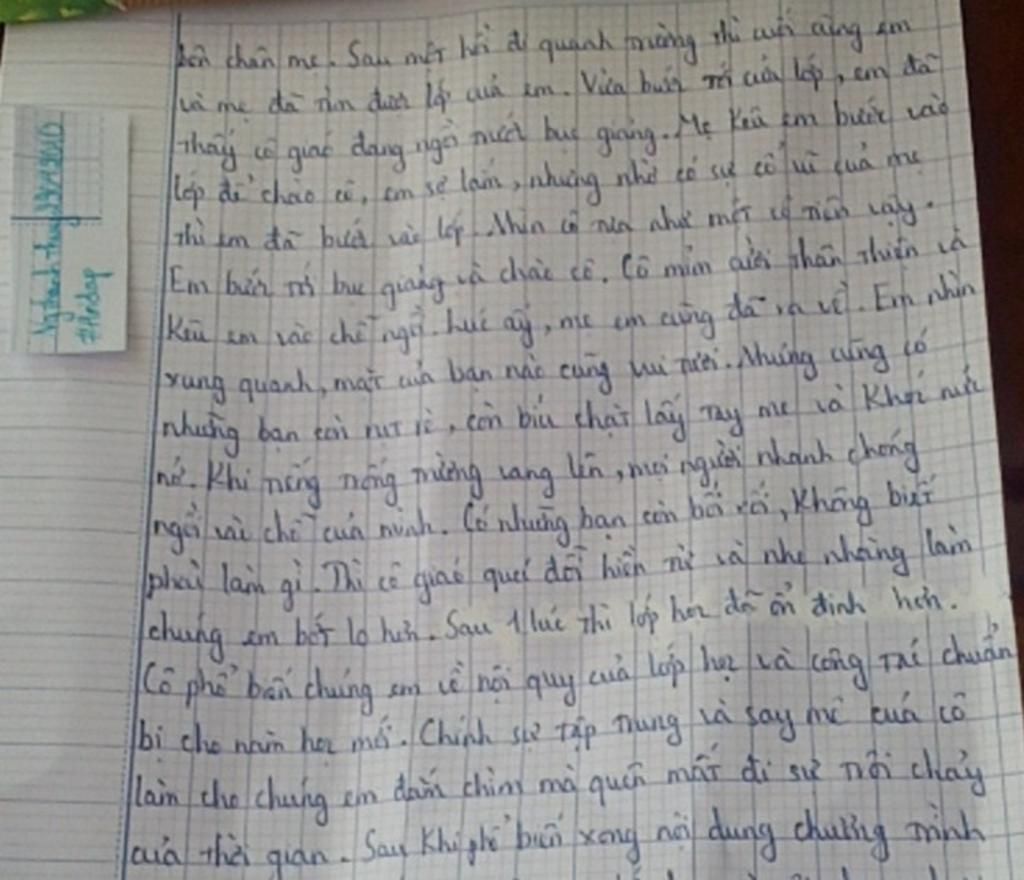 bên chân mẹ. Sau một hồi đi quanh trường thì cuối cùng em
và mẹ đã tìm được lớp của em. Vừa bước tới cửa lớp, em đã
thấy cô giáo đang ngồi trước bục giảng. Mẹ kêu em bước vào
lớp để chào cô, em sợ lắm, nhưng nhờ có sự cổ vũ của mẹ
thì em đã bước vào lớp. Nhìn cô như một cô tiên vậy.
Em bước tới bục giảng và chào cô. Cô mỉm cười thân thiện và
kêu em vào chỗ ngồi. Lúc ấy, mẹ em cũng đã ra về. Em nhìn
xung quanh, mặt của bạn nào cũng vui tươi. Nhưng cũng có
những bạn còn rụt rè, còn bíu chặt lấy tay mẹ và khóc nức
nở. Khi tiếng trống trường vang lên, mọi người nhanh chóng
ngồi vào chỗ của mình. Có những bạn còn bối rối, không biết
phải làm gì. Thì cô giáo quá đỗi hiền từ và nhẹ nhàng làm
chúng em bớt lo hơn. Sau 1 lúc thì lớp học đã ổn định hơn.
Cô phổ biến chúng em về nội quy của lớp học và công tác chuẩn
bị cho năm học mới. Chính sự tập trung và say mê của cô
làm cho chúng em đắm chìm mà quên mất đi sự trôi chảy
của thời gian. Sau khi phổ biến xong nội dung chương trình
#Hoidap